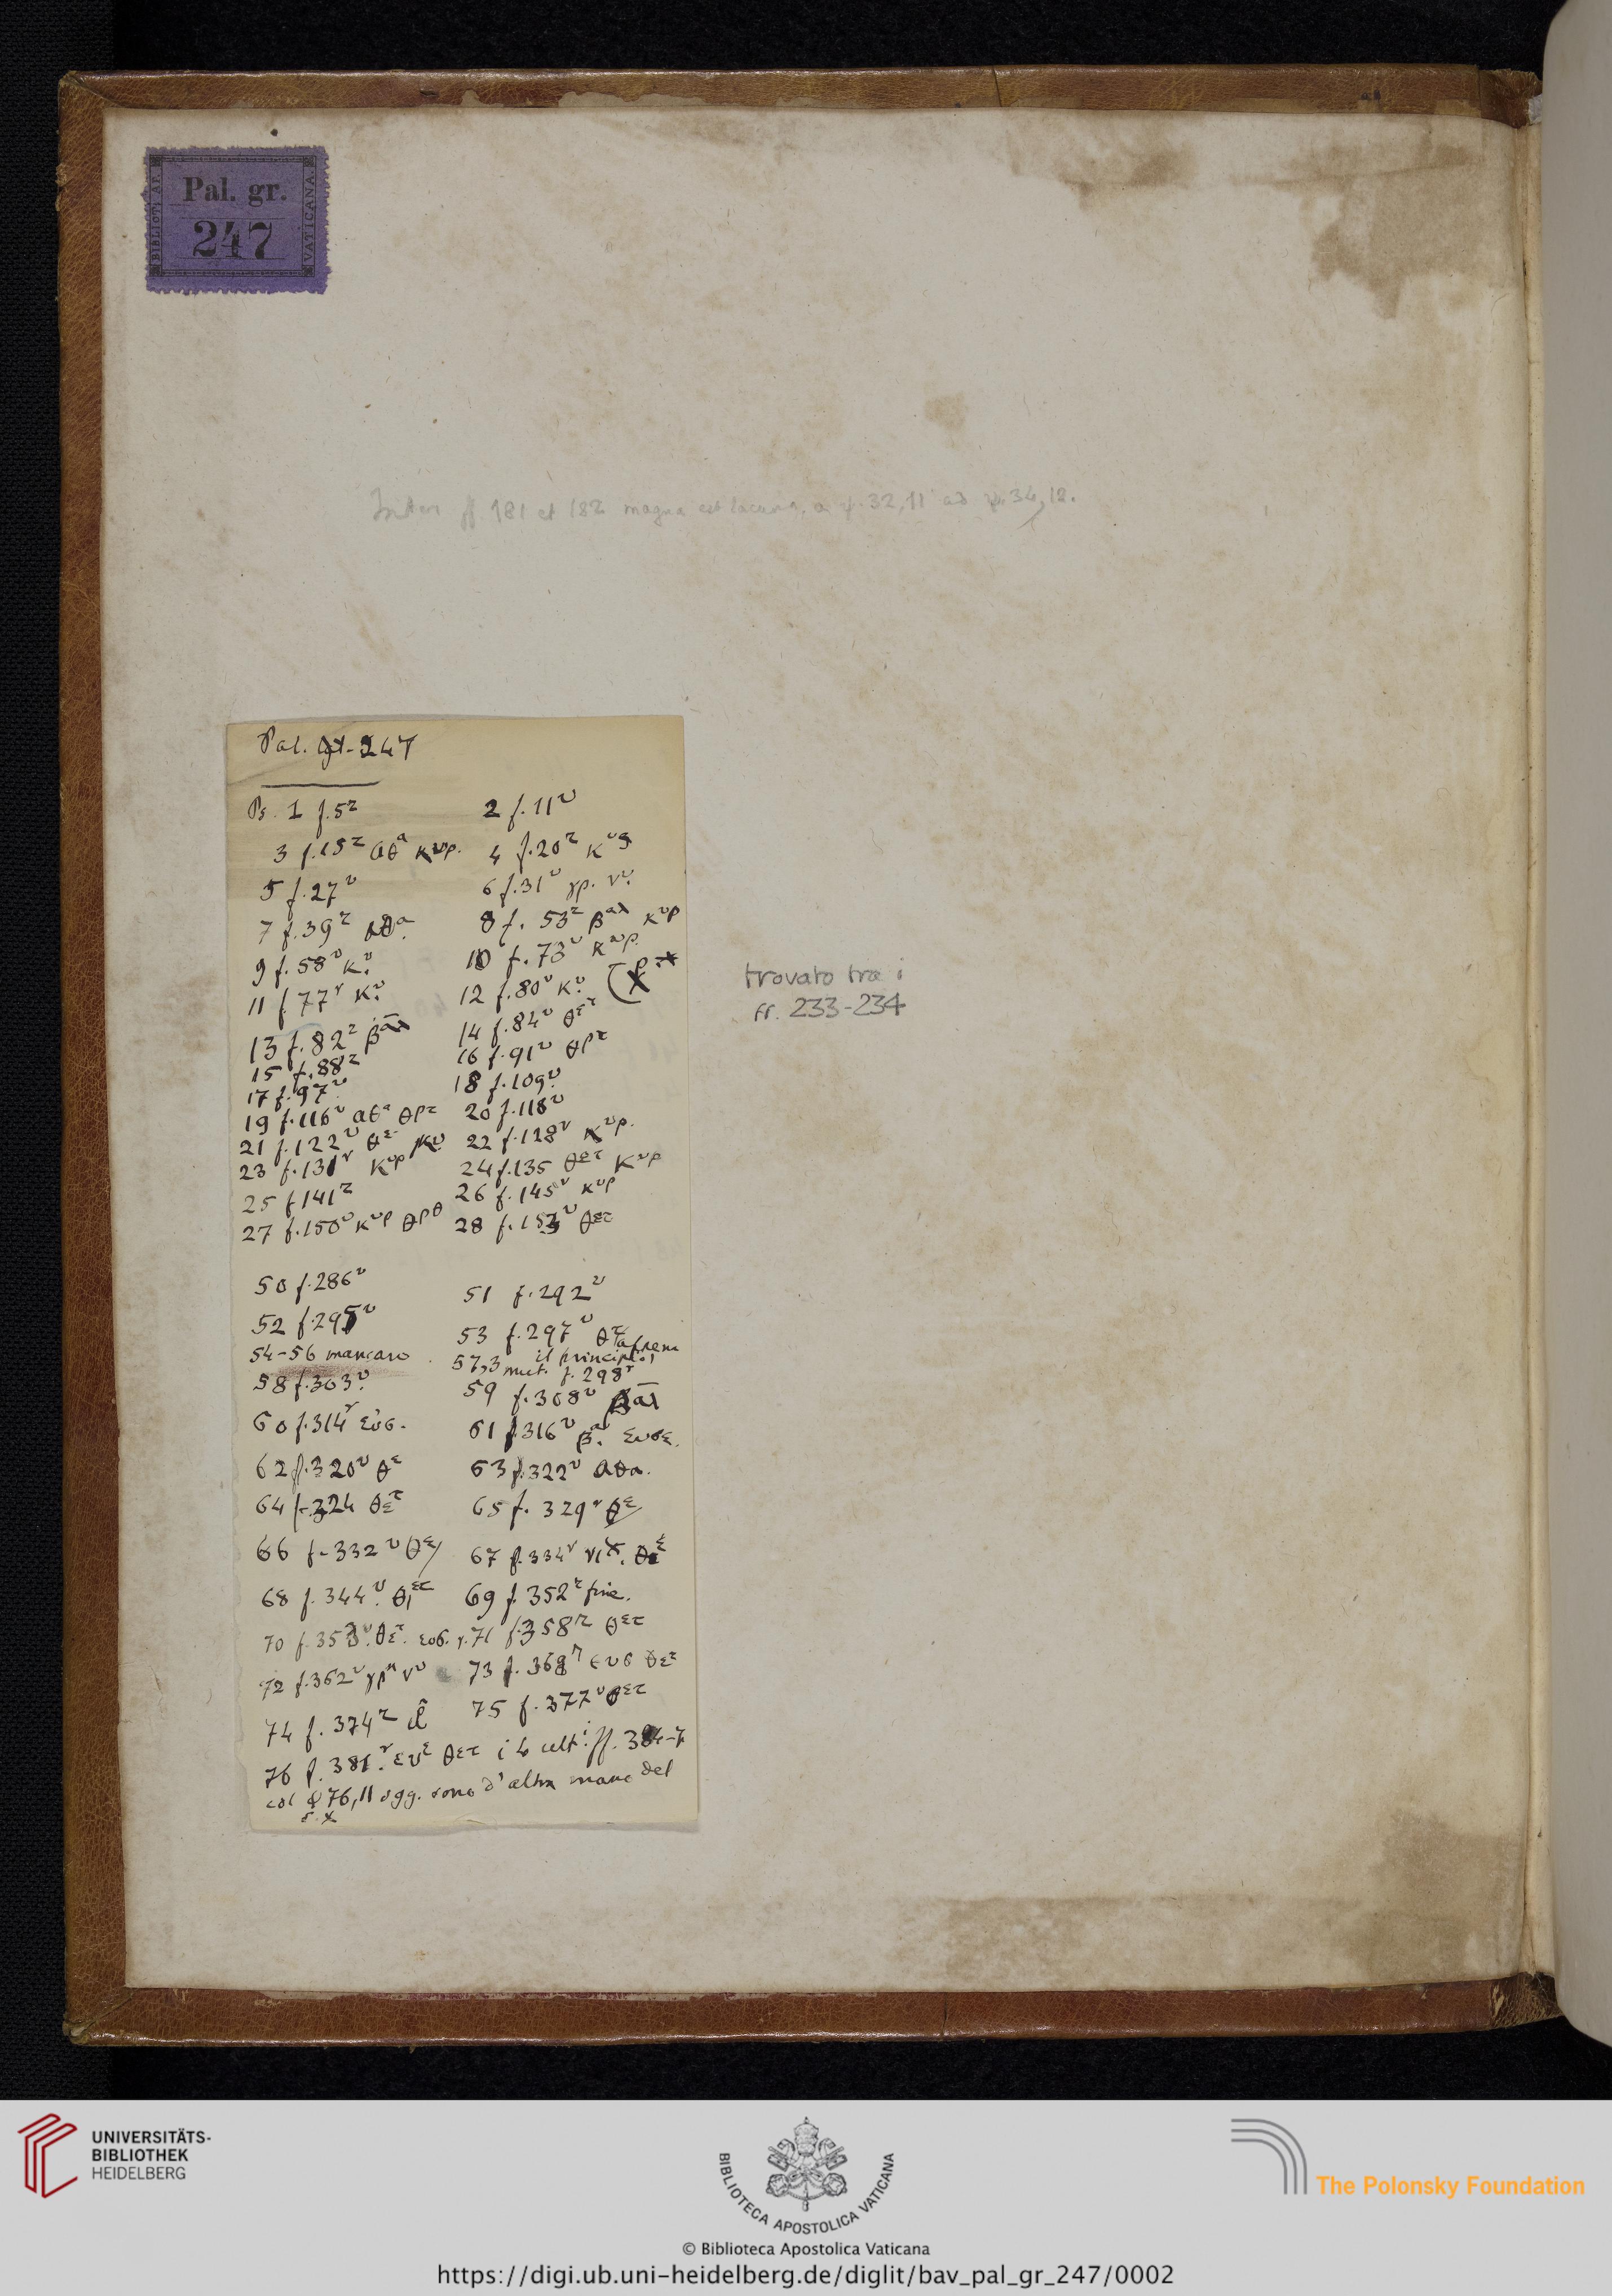 BIBLIOT. AP.
VATICANA
Pal. gr.
247
Inter ff. 181 et 182 magna est lacuna. a ψ. 32,11 ad ψ. 34,12.
Pal. gr. 247
Ps. 1 f.5r 2 f.11v
3 f.15r αθα κυρ. 4 f.20r
5 f.27v 6 f.31v γρ. νυ.
7 f.39r αθα 8 f. 53r βαλ κυρ
9 f.58v κυ 10 f.73v κυρ.
11 f.77v κυ 12 f.80v κυ
13 f.82r βαλ 14 f.84v θετ
15 f.88r 16 f.91v
17 f.97v 18 f.109v
19 f.116v αθα 20 f.118v
21 f.122v θε κυ 22 f.128v κυρ.
23 f.131v κυρ 24 f.135 θετ κυρ
25 f.141r 26 f.145v κυρ
27 f.150v κυρ 28 f.153v θετ
50 f.286v 51 f.292v
52 f.295v 53 f.297v
54-56 mancano 57,3 il principio
mut. f.298r
58 f.303v 59 f.308v βαλ
60 f.314v εὐσ. 61 f.316v βα. ευσε.
62 f.320v θε 63 f.322v αθα.
64 f.324 θετ 65 f. 329v θε
66 f.332v θε 67 f.334v
68 f.344v θετ 69 f.352r fine.
70 f.353v. θετ. ευσ. 71 f.358r θετ
72 f.362v γρη νυ 73 f.368r ευσ θετ
74 f.374r 75 f.377v θετ
76 f.381v ευσ θετ i 4 ult. ff. 384-7
col ψ 76,11 sgg. sono d'altra mano del
s. X
trovato tra i
ff. 233-234
UNIVERSITÄTS-
BIBLIOTHEK
HEIDELBERG
BIBLIOTECA APOSTOLICA VATICANA
The Polonsky Foundation
© Biblioteca Apostolica Vaticana
https://digi.ub.uni-heidelberg.de/diglit/bav_pal_gr_247/0002